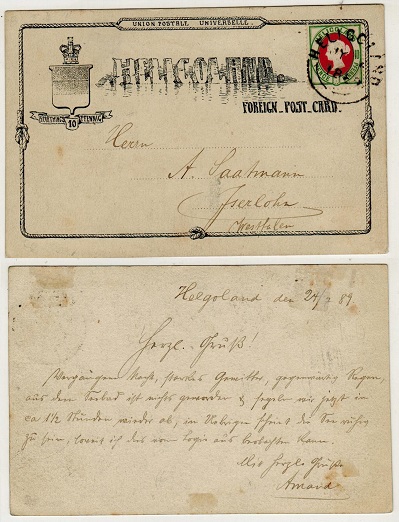 UNION POSTALE UNIVERSELLE
HELIGOLAND
HELIGOLAND
FOREIGN. POST CARD.
10 PFENNIG
Herrn
A. Saatmann
Iserlohn
Westfalen
Helgoland den 24/ 89
Herzl. Gruß!
Vergangene Nacht, starkes Gewitter, gegenwärtig Regen,
aus dem Seebad ist nichts geworden & segeln wir jetzt in
ca 1½ Stunden wieder ab, im Uebrigen scheint die See ruhig
zu sein, soweit ich dies vom Logis aus beobachten kann.
Mit herzl. Gruße
Amand